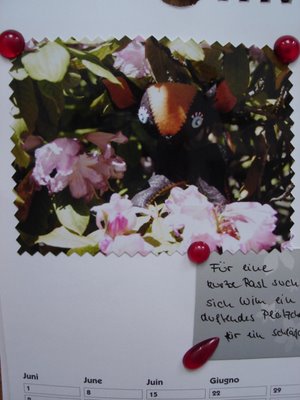 Für eine
kurze Rast such
sich Wim ein
duftendes Plätzche
für ein
Juni
June
Juin
Giugno
1
8
15
22
29